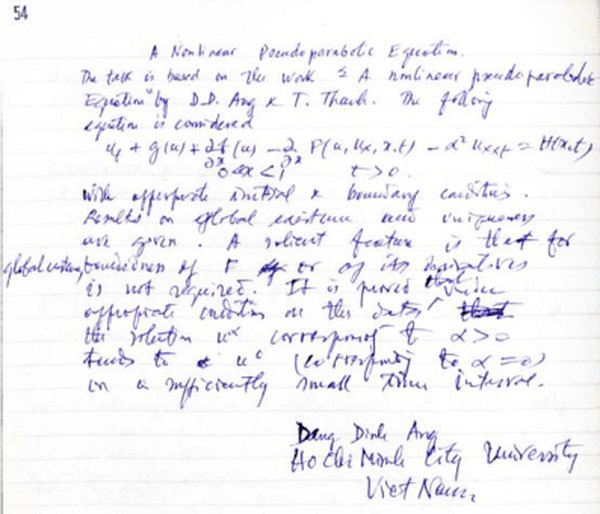 54
A Nonlinear Pseudoparabolic Equation.
The talk is based on the work " A nonlinear pseudoparabolic
Equation" by D.D. Ang & T. Thanh. The following
equation is considered
u_t + g(u) + ∂/∂x f(u) - ∂/∂x F(u, u_x, x, t) - α² u_xxt = H(x,t)
0<x<1, t>0.
with appropriate initial & boundary conditions.
Results on global existence and uniqueness
are given. A salient feature is that for
global existence, boundedness of F or of its derivatives
is not required. It is proved that under
appropriate conditions on the data,
the solution u^α corresponding to α>0
tends to u^0 (corresponding to α=0)
on a sufficiently small time interval.
Dang Dinh Ang
Ho Chi Minh City University
Viet Nam